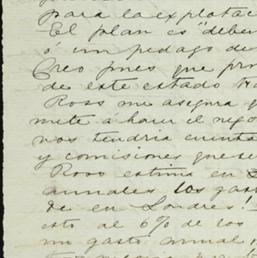 para la explotac
El plan es "deben
ó un pedazo de
Creo pues que pri
de este estado tra
Ross me asegura q
mete a hacer el nego
nos tendria cuenta
y comisiones que se
Ross estima en
annales los gast
de en Londres!
esto al 6% de los
un gasto annual,